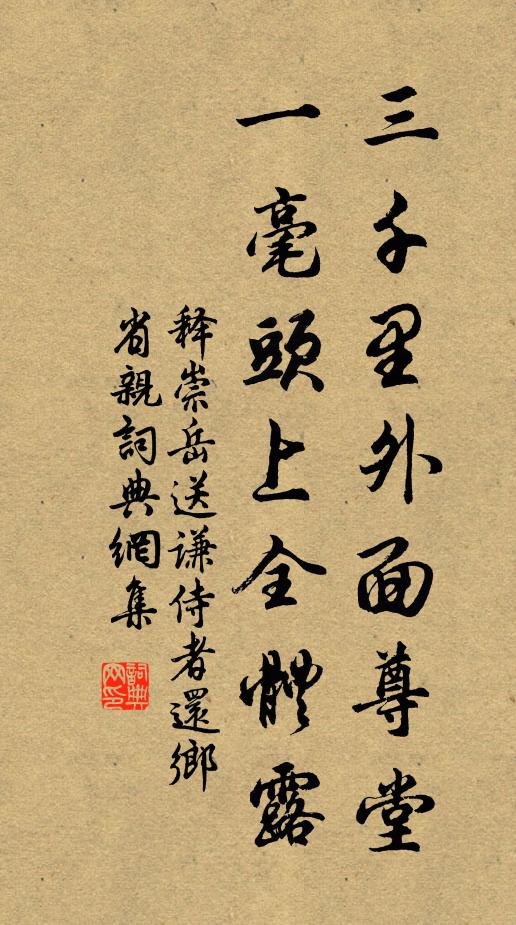 三千里外面尊堂
一毫頭上全體露
释崇岳送谦侍者還鄉
省親詞典網集
詞典网印